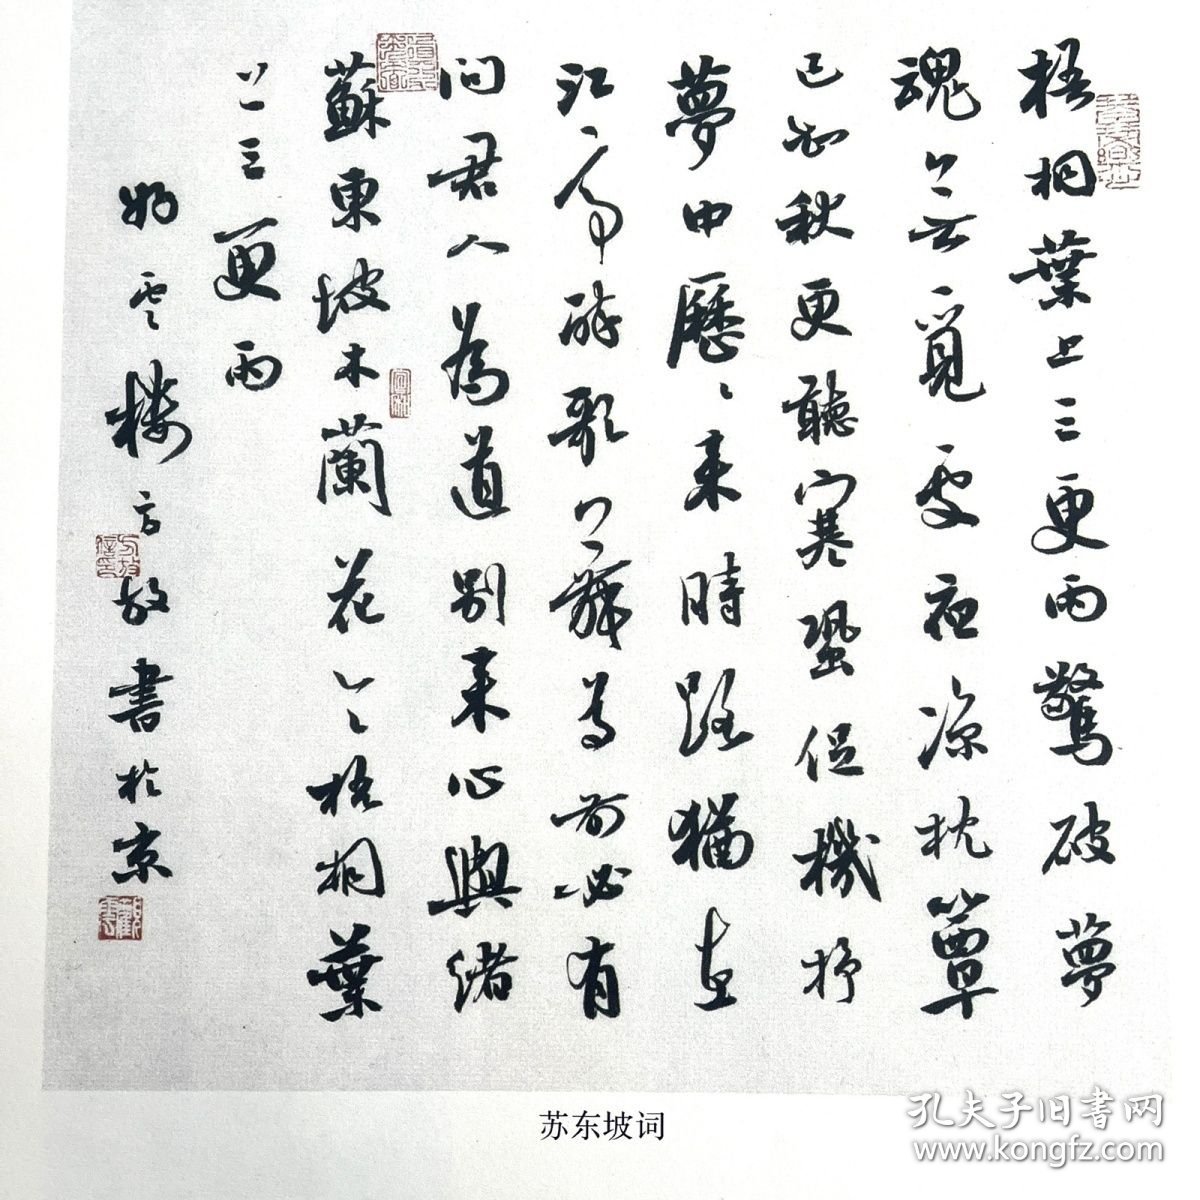 梧桐葉上三更雨驚破夢
魂無覓處夜涼枕簟
已知秋更聽寒蛩促機杼
夢中歷々來時路猶在
江亭醉歌舞尊前必有
問君人為道別來心與緒
蘇東坡木蘭花令梧桐葉
上三更雨
雲樓方書於京
苏东坡词
孔夫子旧书网
www.kongfz.com